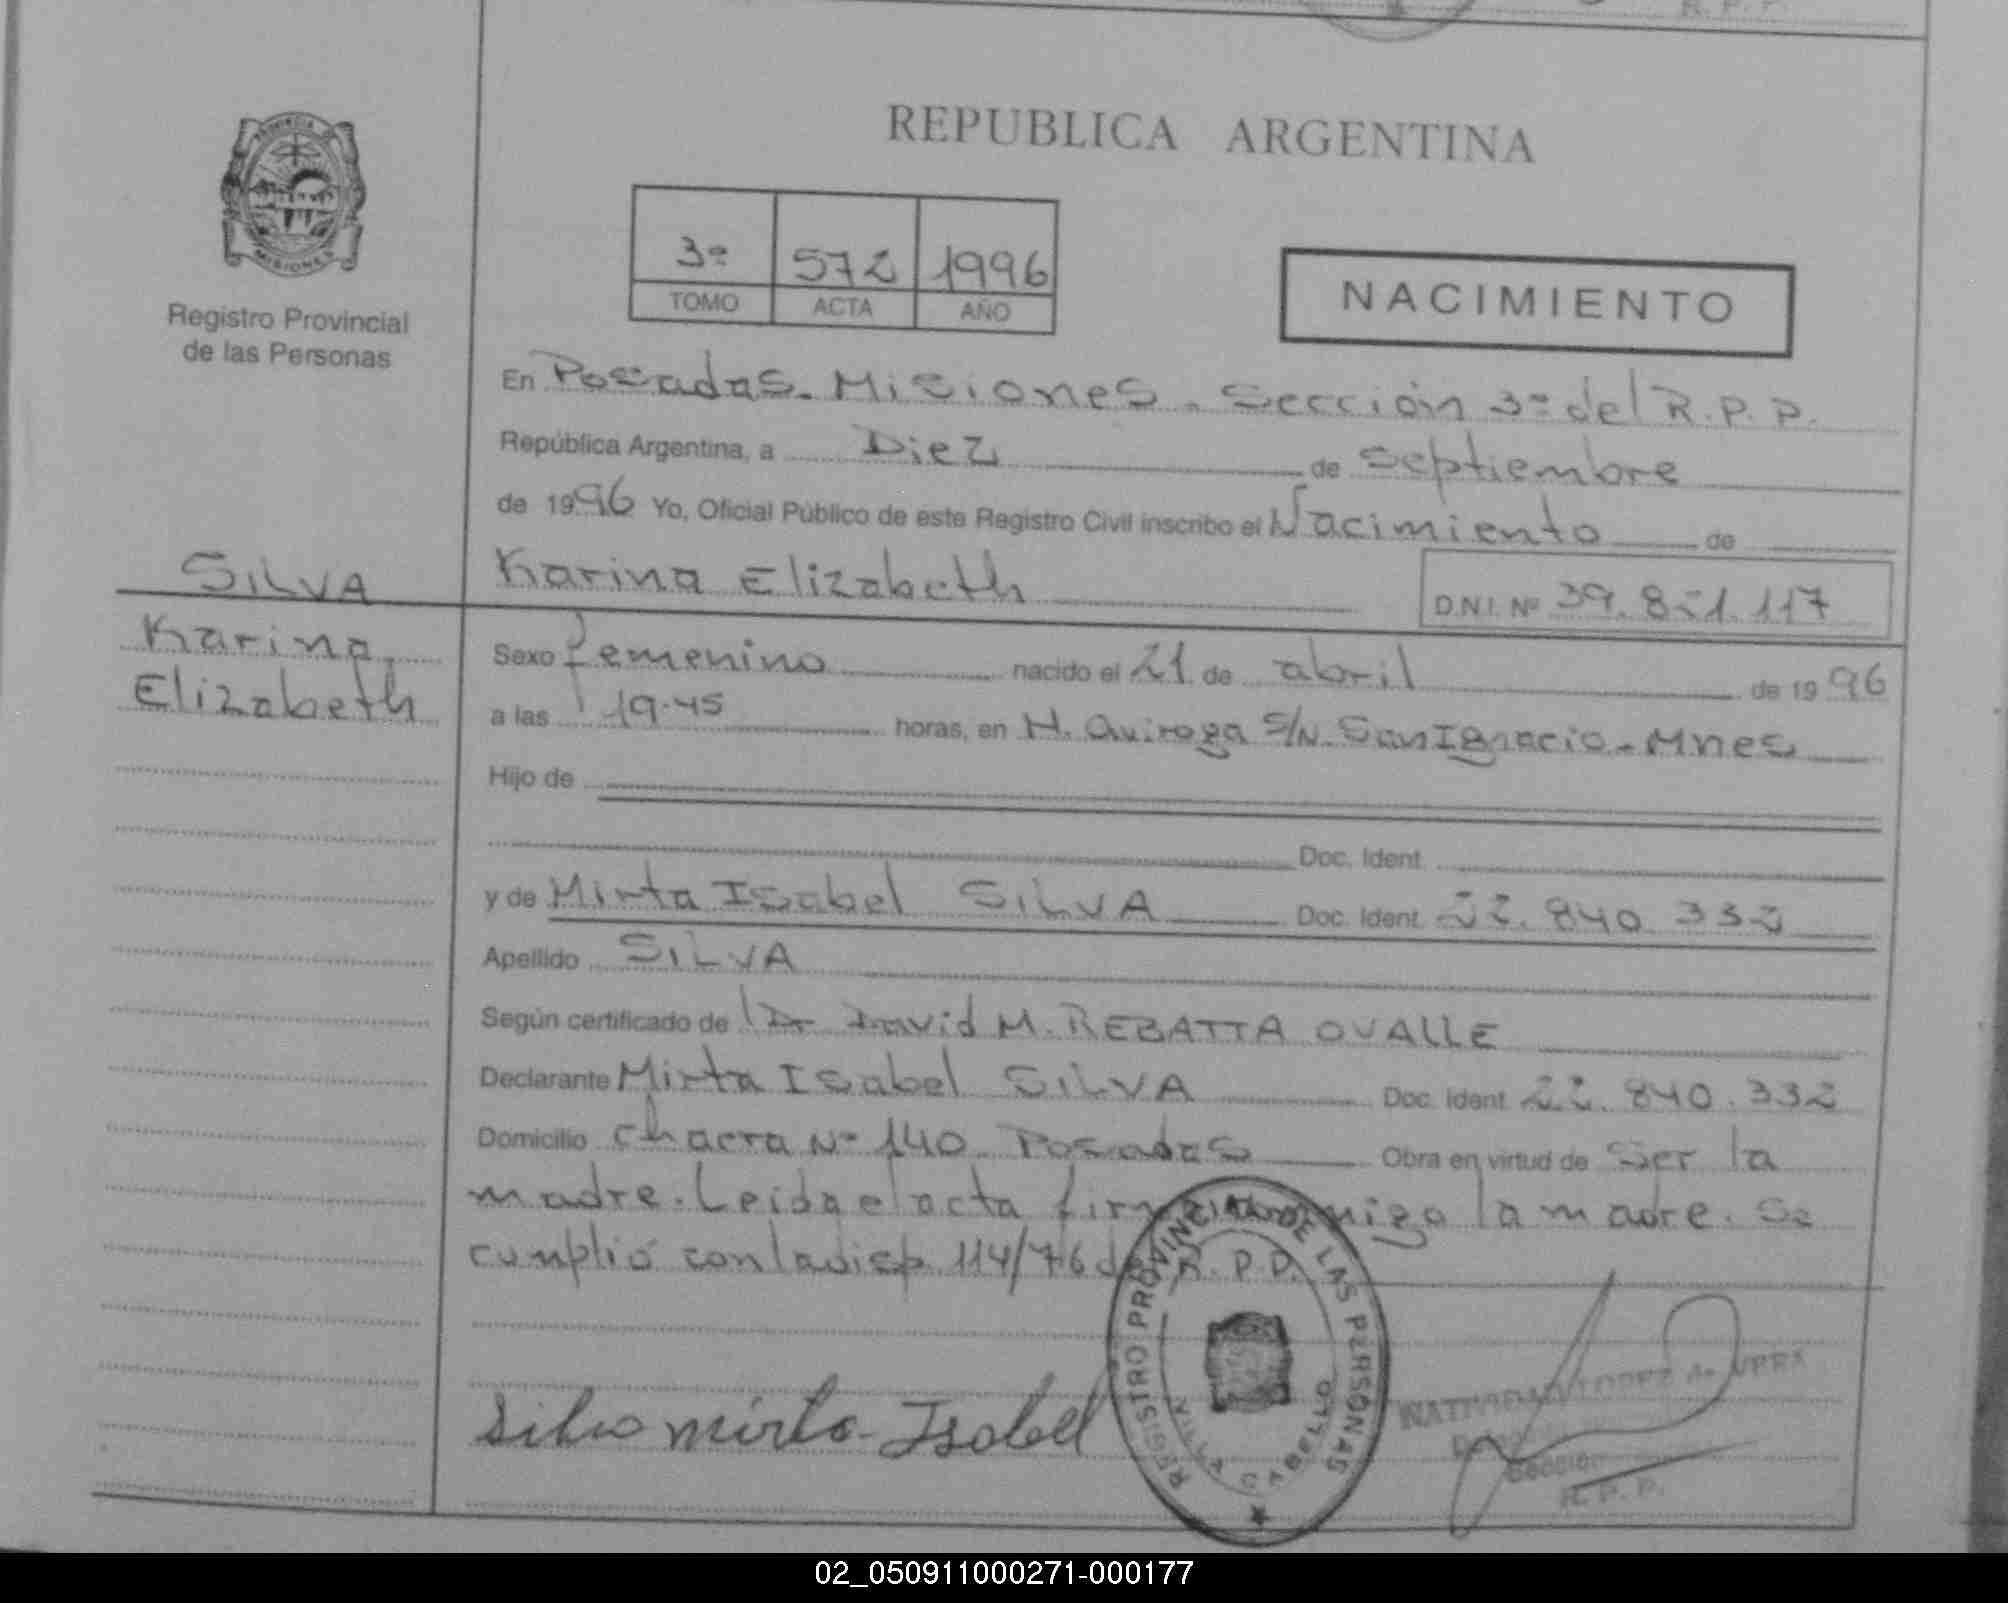 R. P. P.
PROVINCIA DE
MISIONES
Registro Provincial
de las Personas
REPUBLICA ARGENTINA
3º 572 1996
TOMO ACTA AÑO
NACIMIENTO
En Posadas. Misiones. Sección 3º del R.P.P.
República Argentina, a Diez de Septiembre
de 1996 Yo, Oficial Público de este Registro Civil inscribo el Nacimiento de
SILVA
Karina Elizabeth
D.N.I. Nº 39.821.117
Karina
Elizabeth
Sexo femenino nacido el 21 de abril de 1996
a las 19.45 horas, en H. Quiroga S/N. San Ignacio - Mnes
Hijo de
Doc. Ident.
y de Mirta Isabel SILVA Doc. Ident. 22.840.332
Apellido SILVA
Según certificado de Dr David M. REBATTA OVALLE
Declarante Mirta Isabel SILVA Doc. Ident. 22.840.332
Domicilio Chacra Nº 140. Posadas Obra en virtud de Ser la
madre. Leida el acta firma conmigo la madre. Se
cumplió con la disp. 114/76 del R.P.P.
REGISTRO PROVINCIAL DE LAS PERSONAS
Silva Mirta Isabel
NATIVIDAD LOPEZ de
Sección
R. P. P.
02_050911000271-000177